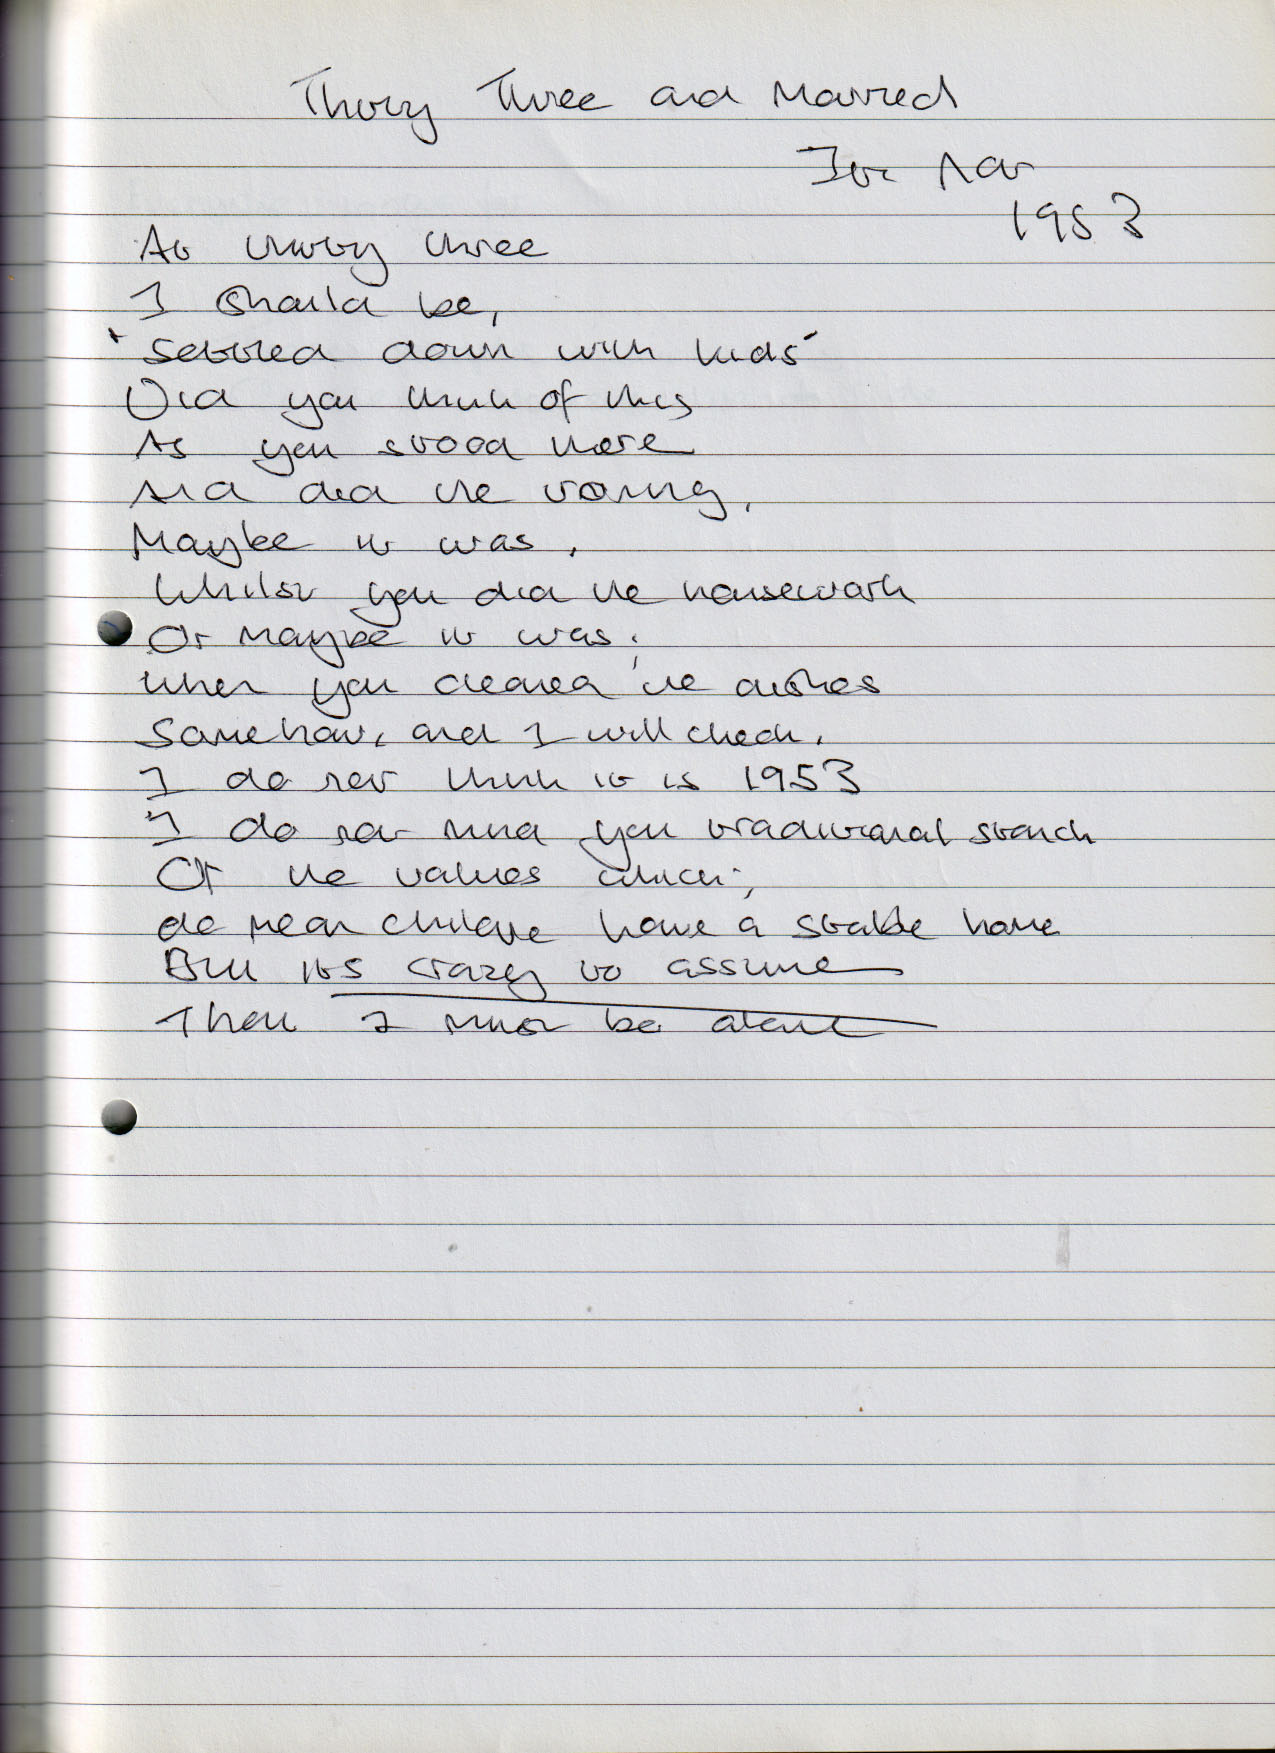 Thirty Three and Married
Its not
1953
At thirty three
I should be,
'Settled down with kids'
Did you think of this
As you stood there
And did the ironing,
Maybe it was,
Whilst you did the housework
Or maybe it was;
when you cleaned the dishes
Somehow, and I will check,
I do not think it is 1953
I do not mind you traditional stance
Or the values which;
do mean children have a stable home
But its crazy to assume
That I must be